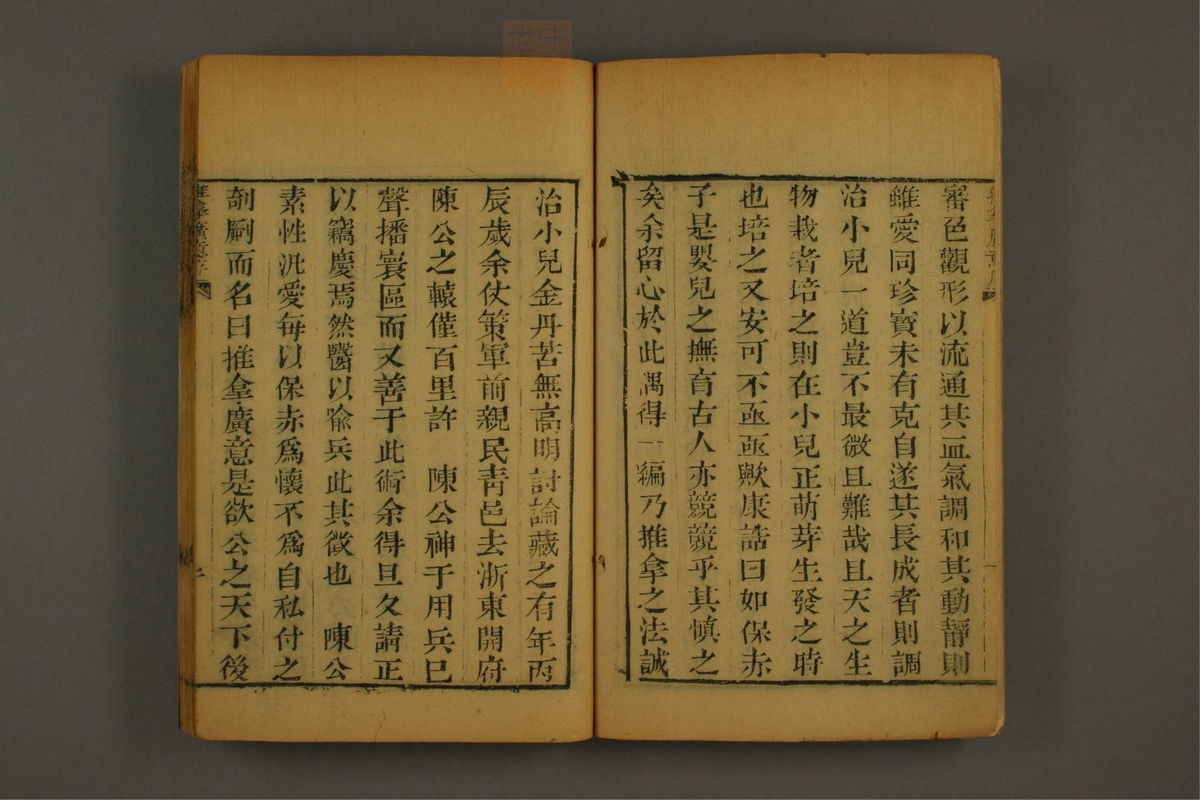 審色觀形以流通其血氣調和其動靜則
雖愛同珍寶未有克自遂其長成者則調
治小兒一道豈不最微且難哉且天之生
物栽者培之則在小兒正萌芽生發之時
也培之又安可不亟亟歟康誥曰如保赤
子是嬰兒之撫育古人亦競競乎其慎之
矣余留心於此偶得一編乃推拿之法誠
治小兒金丹苦無高明討論藏之有年丙
辰歲余仗策軍前親民青邑去浙東開府
陳公之轅僅百里許　陳公神于用兵巳
聲播寰區而又善于此術余得旦夕請正
以竊慶焉然醫以喻兵此其徵也　陳公
素性汎愛每以保赤爲懷不爲自私付之
剞劂而名曰推拿廣意是欲公之天下後
推拿廣意序